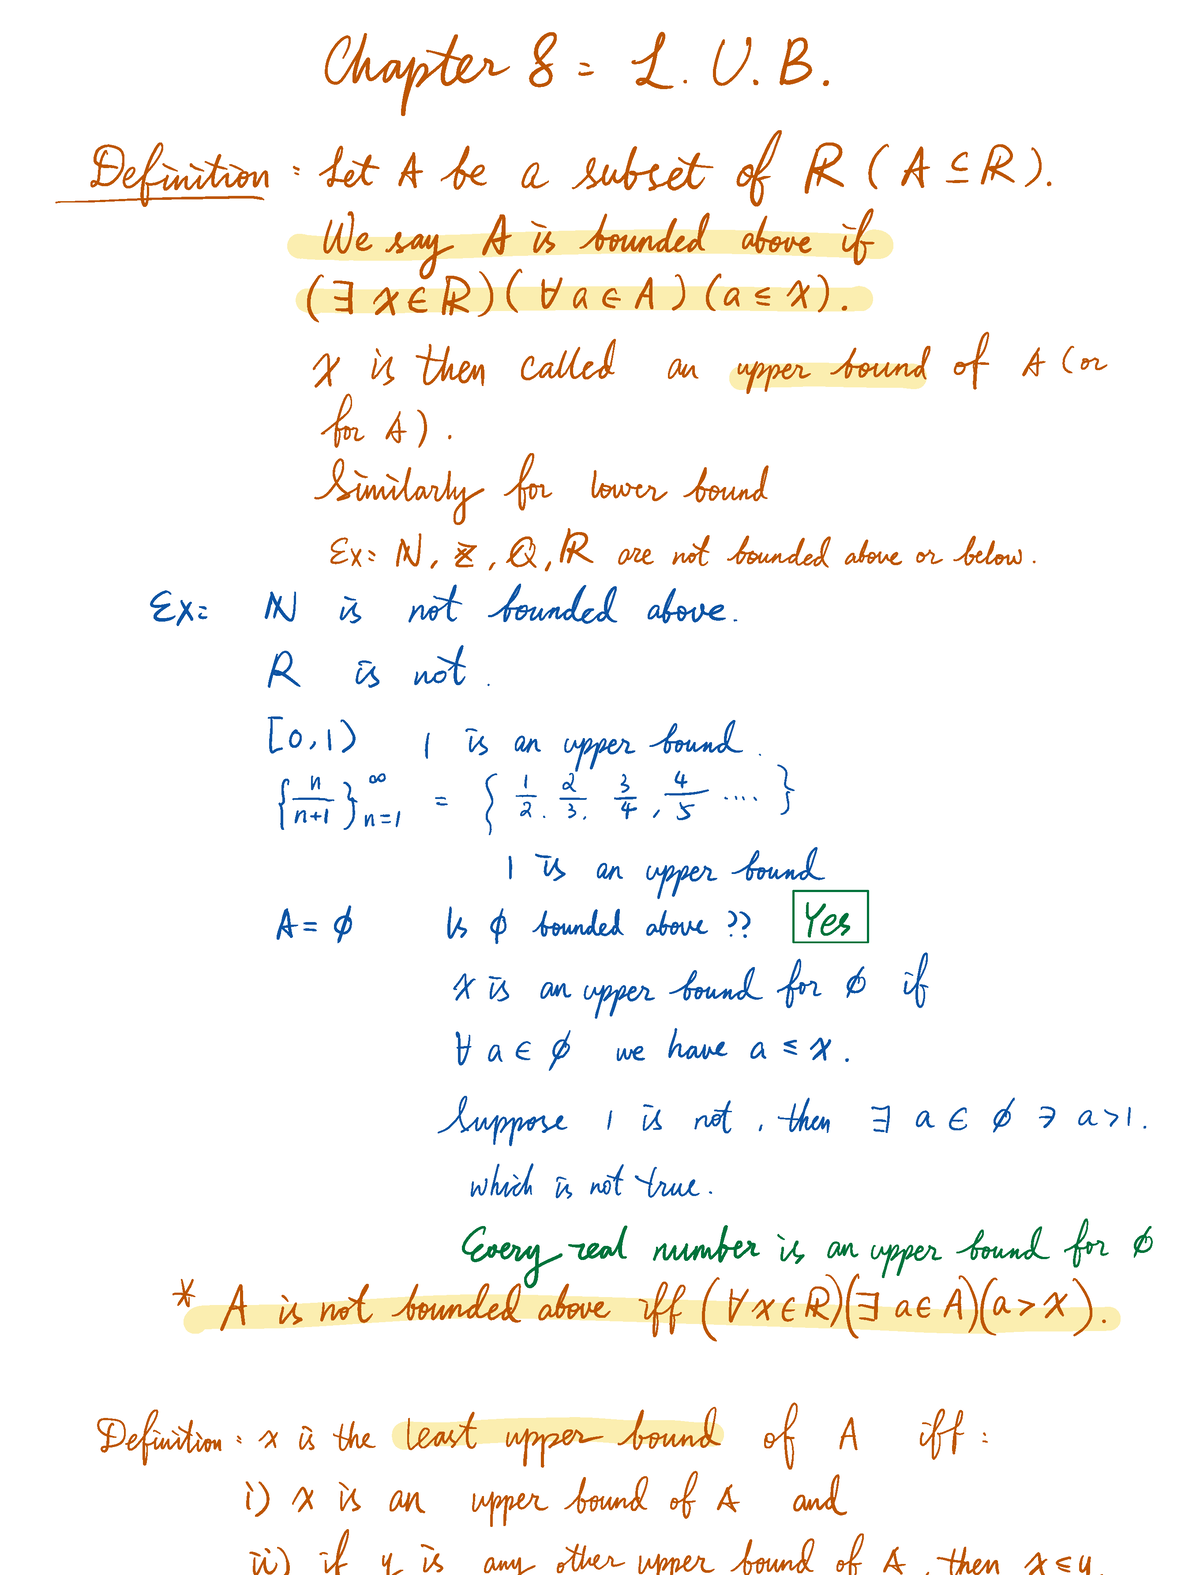 Chapter 8 = L. U. B.
Definition : Let A be a subset of ℝ ( A ⊆ ℝ ).
We say A is bounded above if
( ∃ x ∈ ℝ ) ( ∀ a ∈ A ) ( a ≤ x ).
x is then called an upper bound of A ( or
for A ) .
Similarly for lower bound
Ex: ℕ, ℤ, ℚ, ℝ are not bounded above or below.
Ex: ℕ is not bounded above.
R is not .
[0,1) 1 is an upper bound .
{n/(n+1)}_{n=1}^∞ = { 1/2 . 2/3 . 3/4 , 4/5 .... }
1 is an upper bound
A = ∅ Is ∅ bounded above ?? Yes
x is an upper bound for ∅ if
∀ a ∈ ∅ we have a ≤ x .
Suppose 1 is not , then ∃ a ∈ ∅ ∋ a > 1 .
which is not true .
Every real number is an upper bound for ∅
* A is not bounded above iff ( ∀ x ∈ ℝ ) ( ∃ a ∈ A ) ( a > x ) .
Definition : x is the least upper bound of A iff :
i) x is an upper bound of A and
ii) if y is any other upper bound of A , then x ≤ y .